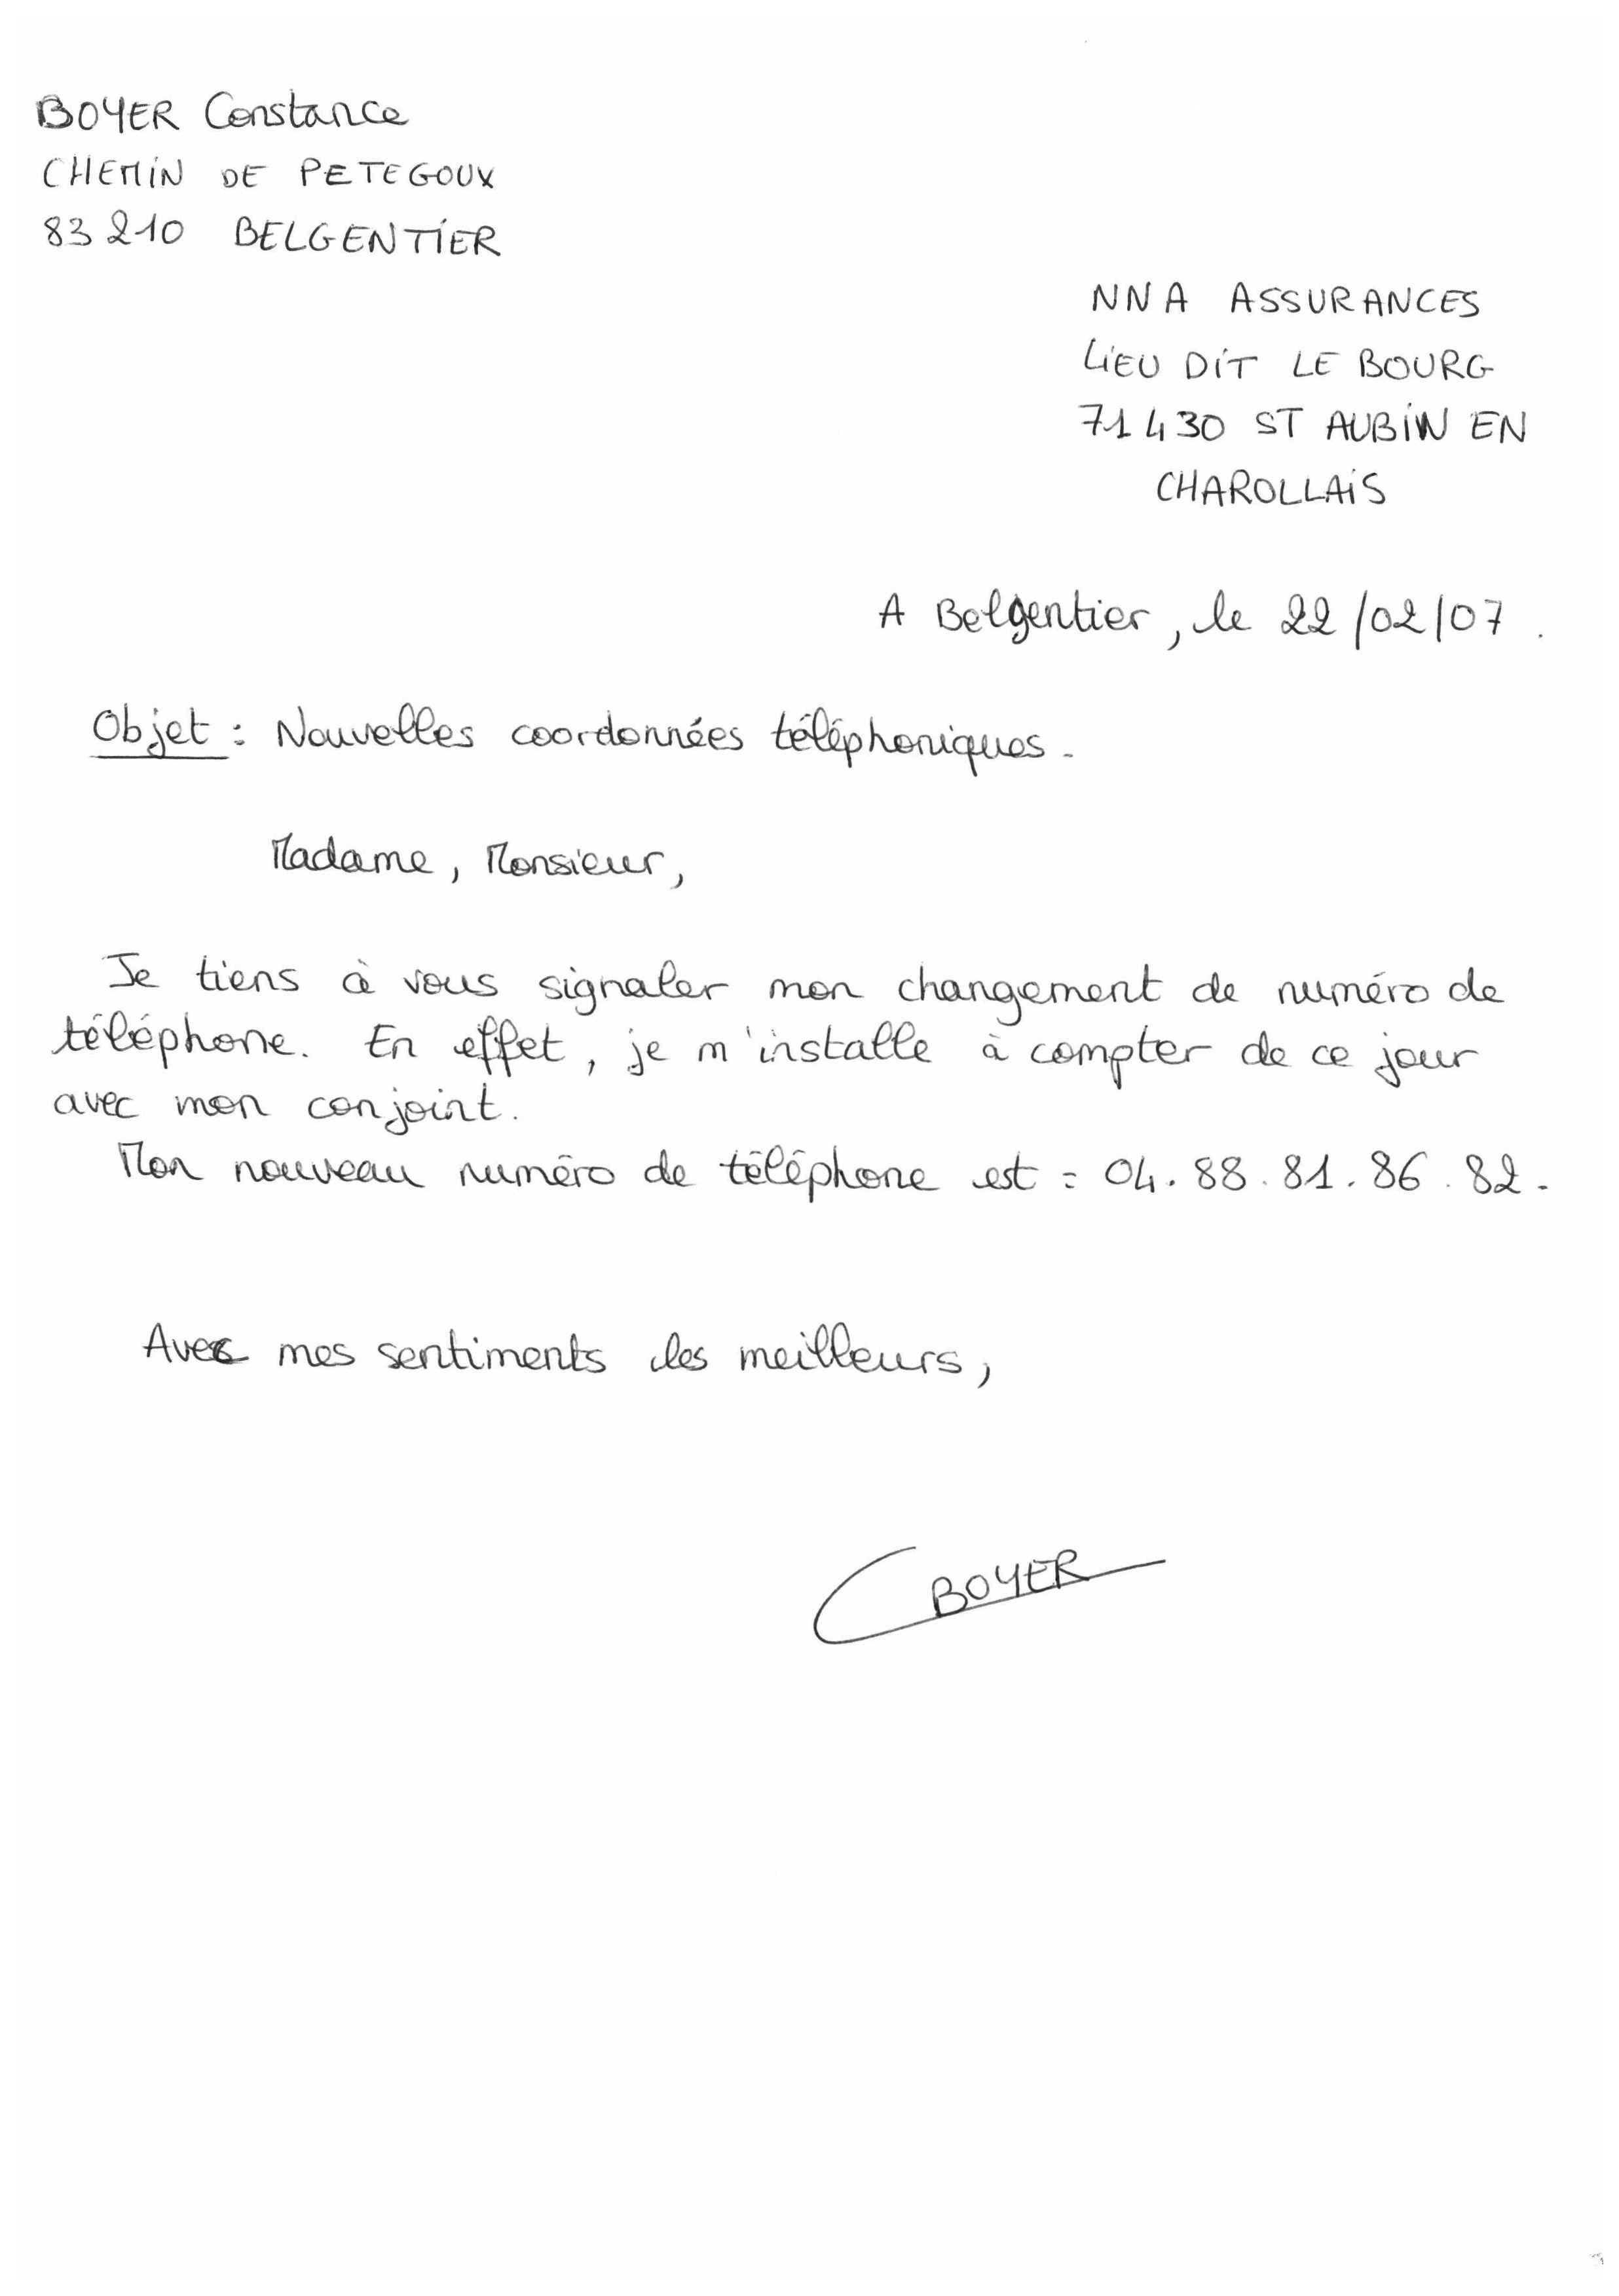 BOYER Constance
CHEMIN DE PETEGOUX
83210 BELGENTIER
NNA ASSURANCES
LIEU DIT LE BOURG
71430 ST AUBIN EN
CHAROLLAIS
A Belgentier, le 22/02/07.
Objet : Nouvelles coordonnées téléphoniques.
Madame, Monsieur,
Je tiens à vous signaler mon changement de numéro de
téléphone. En effet, je m'installe à compter de ce jour
avec mon conjoint.
Mon nouveau numéro de téléphone est : 04.88.81.86.82.
Avec mes sentiments les meilleurs,
C BOYER